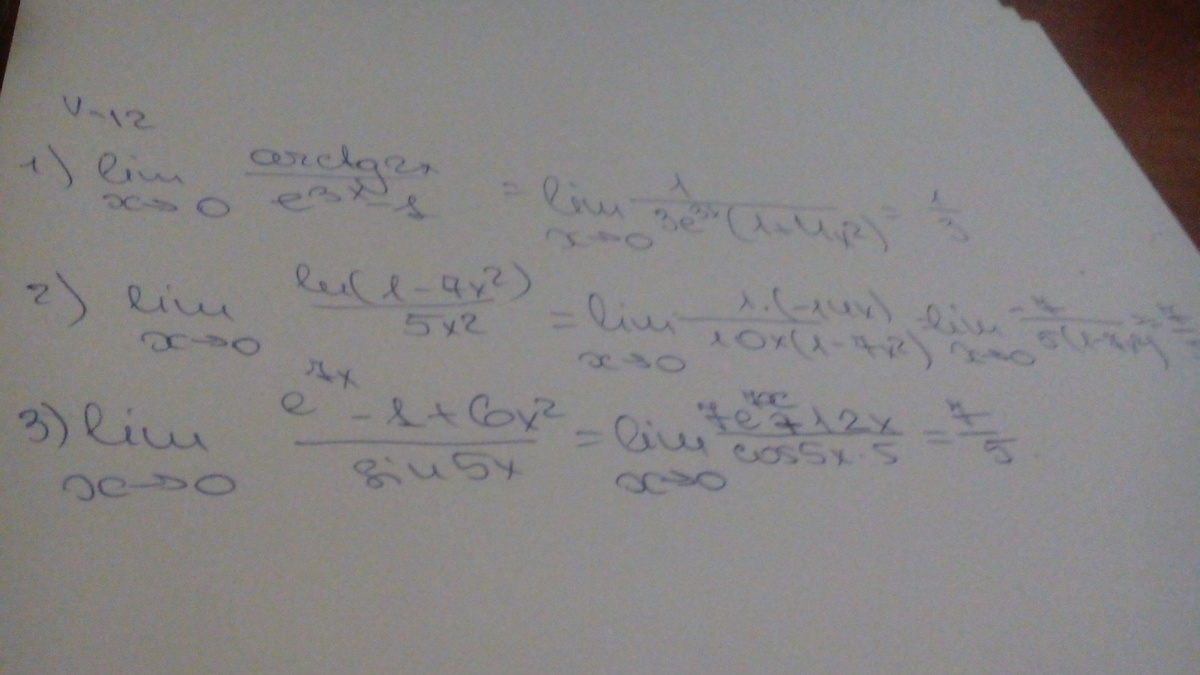 V-12
1) lim x→0 arctg2x / (e^3x - 1) = lim x→0 1 / (3e^3x (1+4x²)) = 1/3
2) lim x→0 ln(1-7x²) / 5x² = lim x→0 1·(-14x) / (10x(1-7x²)) lim x→0 -7 / 5(1-7x²) =
3) lim x→0 (e^7x - 1 + 6x²) / sin5x = lim x→0 (7e^7x + 12x) / (cos5x·5) = 7/5